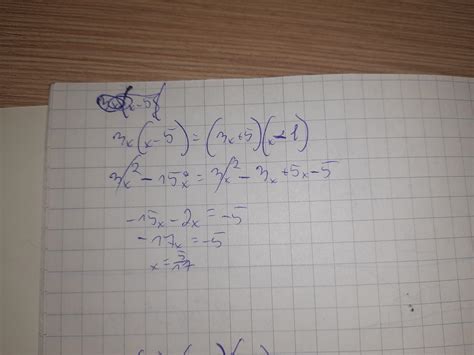 3x(x-5)=(3x+5)(x-1)
3x²-15x=3x²-3x+5x-5
-15x-2x=-5
-17x=-5
x=5/17